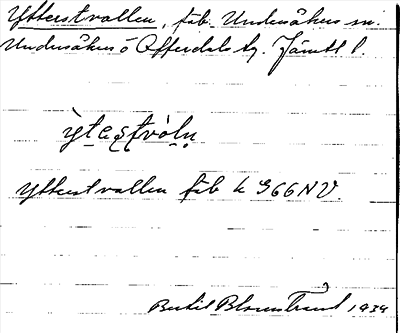 Ytterstvallen, fäb. Undersåkers sn.
Undersåkers o Offerdals tg. Jämtl l.
ỳtestvòln
Ytterstvallen fäb k G66NV.
Bertil Blomstrand 1939